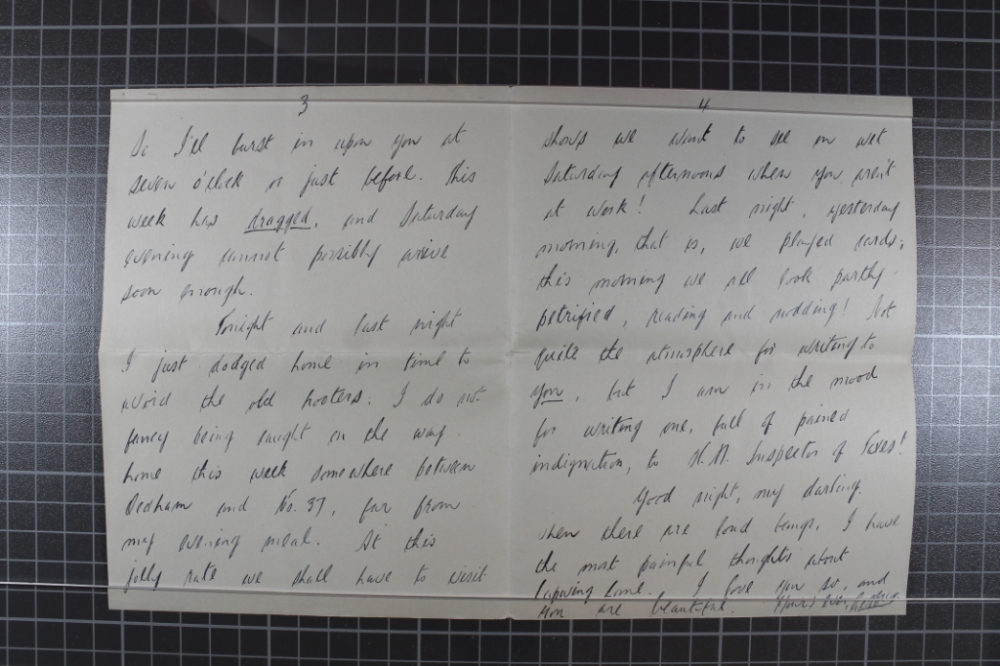 3
So I'll burst in upon you at
seven o'clock or just before. This
week has dragged, and Saturday
evening cannot possibly arrive
soon enough.
Tonight and last night
I just dodged home in time to
avoid the old hooters. I do not
fancy being caught on the way
home this week somewhere between
Dedham and No. 37, far from
my evening meal. At this
jolly rate we shall have to visit
4
shows we want to see on wet
Saturday afternoons when you aren't
at work! Last night, yesterday
morning, that is, we played cards;
this morning we all look partly
petrified, reading and nodding! Not
quite the atmosphere for writing to
you, but I am in the mood
for writing one, full of pained
indignation, to H.M. Inspector of Taxes!
Good night, my darling.
When there are loud bangs, I have
the most painful thoughts about
I love you so, and
you are beautiful. Yours ever,